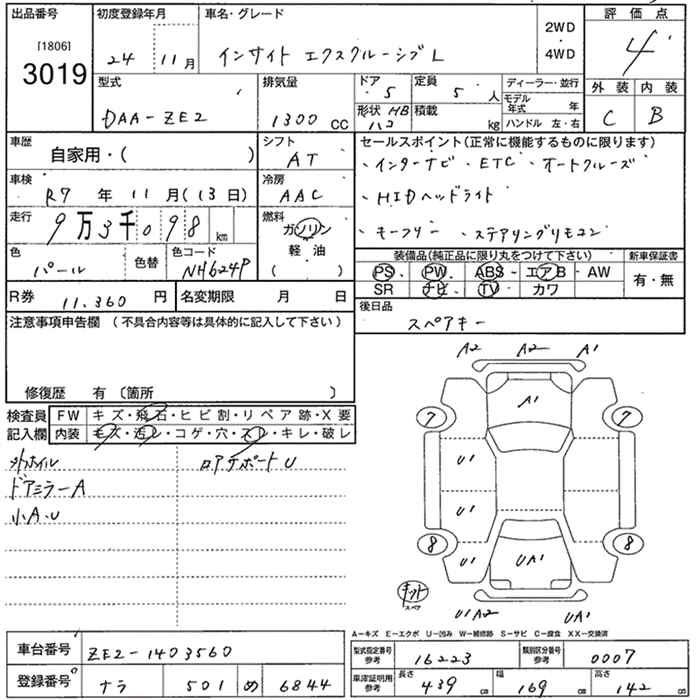 出品番号 初度登録年月 車名・グレード 2WD・4WD 評価点
[1806]
3019 24 11月 インサイト エクスクルーシブ L 4
型式 排気量 ドア 5 定員 5 人 ディーラー・並行 外装 内装
DAA-ZE2 1300 CC 形状 HB ハコ 積載 kg モデル年式 年 C B
ハンドル 左・右
車歴 自家用・( ) シフト AT セールスポイント(正常に機能するものに限ります)
・インターナビ ・ETC ・オートクルーズ
車検 R7 年 11 月(13日) 冷房 AAC ・HIDヘッドライト
走行 9万3千098 km 燃料 ガソリン 軽油 ( ) ・キーフリー ・ステアリングリモコン
色 パール 色替 色コード NH624P 装備品(純正品に限り丸をつけて下さい) 新車保証書
PS・PW・ABS・エアB・AW 有・無
SR ナビ TV カワ
R券 11.360 円 名変期限 月 日 後日品
スペアキー
注意事項申告欄 (不具合内容等は具体的に記入して下さい)
修復歴 有 〔箇所 〕
検査員 FW キズ・飛石・ヒビ割・リペア跡・X要
記入欄 内装 キズ・汚レ・コゲ・穴・スレ・キレ・破レ
ロアテボード U
ドアミラーA
小A.U
A2 A2 A1
A1
7 7
U1
U1
8 8
U1 UA1
キット
スペア
U1 A2 UA1
A-キズ E-エクボ U-凹み W-補修跡 S-サビ C-腐食 XX-交換済
車台番号 ZE2-1403560 型式指定番号 参考 16223 類別区分番号 参考 0007
登録番号 ナラ 501 め 6844 車庫証明用 参考 長さ 439 cm 幅 169 cm 高さ 142 cm